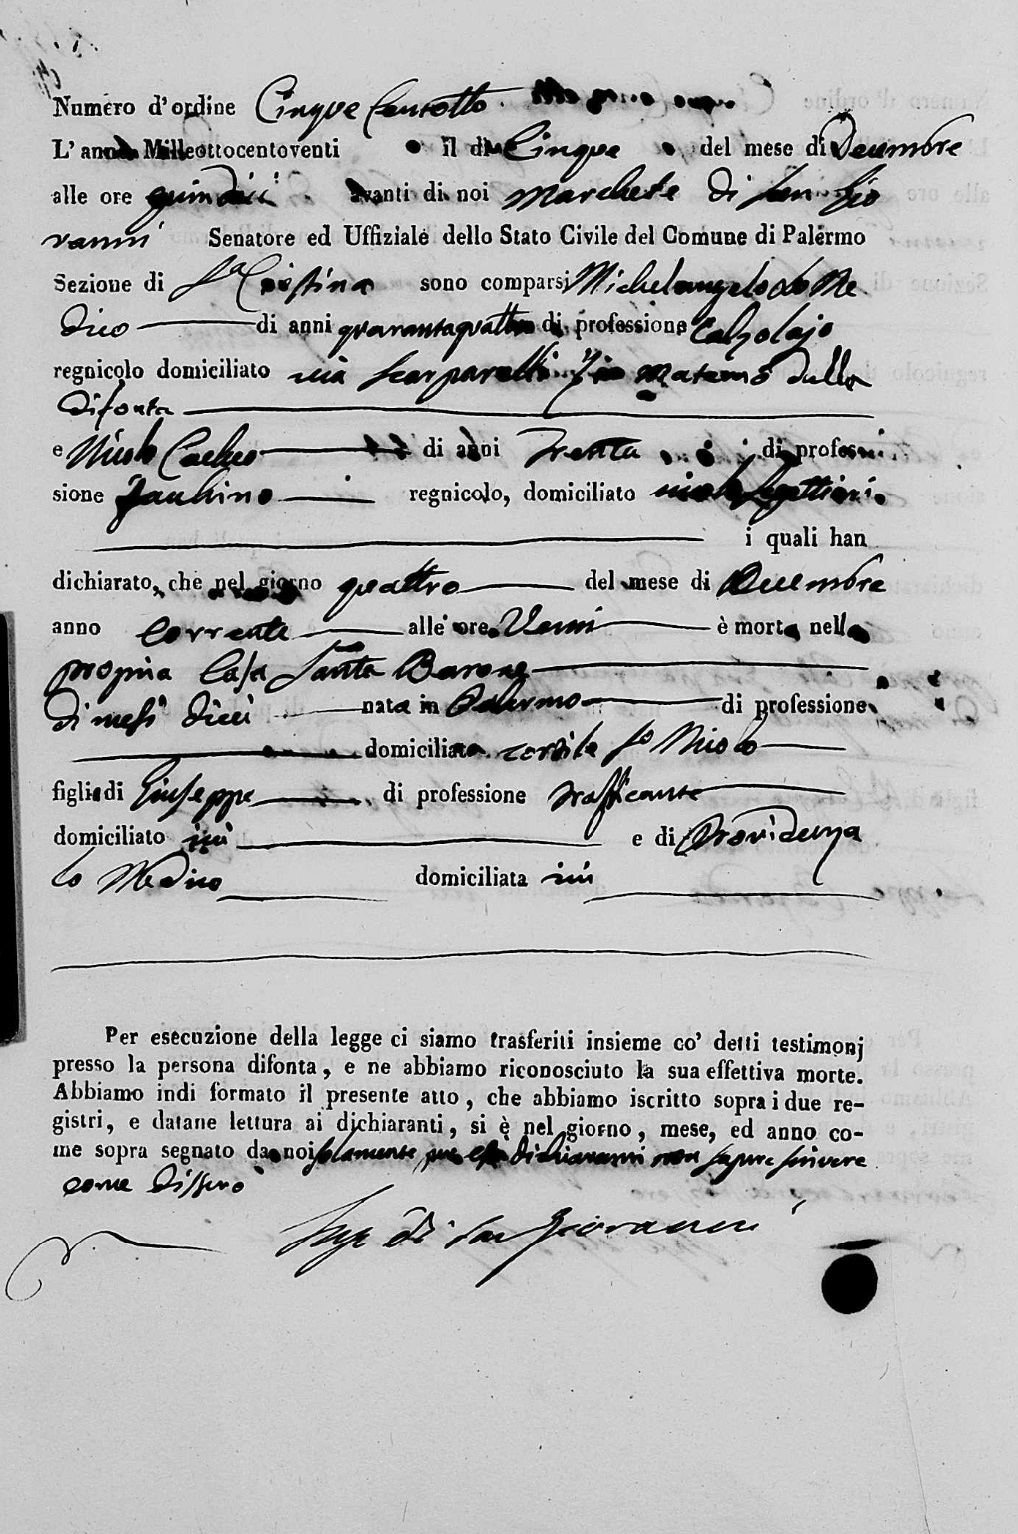 Numero d'ordine Cinque Centotto
L'anno Milleottocentoventi il di Cinque del mese di Decembre
alle ore quindici avanti di noi Marchese di San Gio
vanni Senatore ed Uffiziale dello Stato Civile del Comune di Palermo
Sezione di Sa Cristina sono comparsi Michelangelo Lo Me
dico di anni quarantaquattro di professione Calzolajo
regnicolo domiciliato via Scarparelli Zio Materno della
difonta
e Nicolò di anni Trenta di profes-
sione Facchino regnicolo, domiciliato
i quali han
dichiarato, che nel giorno quattro del mese di Decembre
anno Corrente alle ore Venti è morta nella
propria Casa Santa Barone
di mesi dieci nata in Palermo di professione
domiciliata cortile Sn Nicolò
figlia di Giuseppe di professione trafficante
domiciliato ivi e di Providenza
Lo Medico domiciliata ivi
Per esecuzione della legge ci siamo trasferiti insieme co' detti testimonj
presso la persona difonta, e ne abbiamo riconosciuto la sua effettiva morte.
Abbiamo indi formato il presente atto, che abbiamo iscritto sopra i due re-
gistri, e datane lettura ai dichiaranti, si è nel giorno, mese, ed anno co-
me sopra segnato da noi solamente, per essi dichiaranti non sapere scrivere
come dissero
di San Giovanni